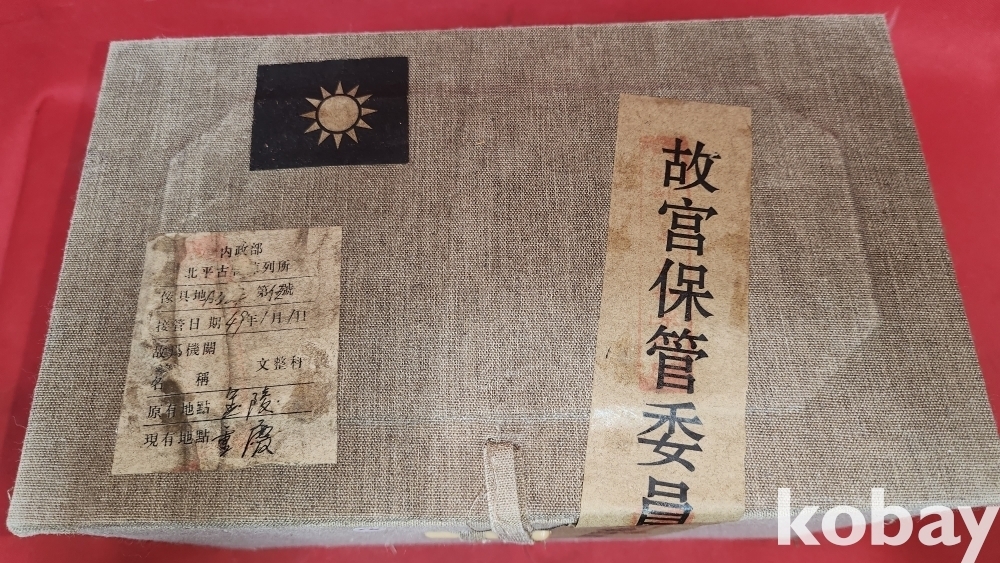 故宮保管委員
內政部
北平古 列所
傢具地 第 號
接管日期49年1月1日
機關
名稱 文整科
原有地點 金陵
現有地點 重慶
kobay